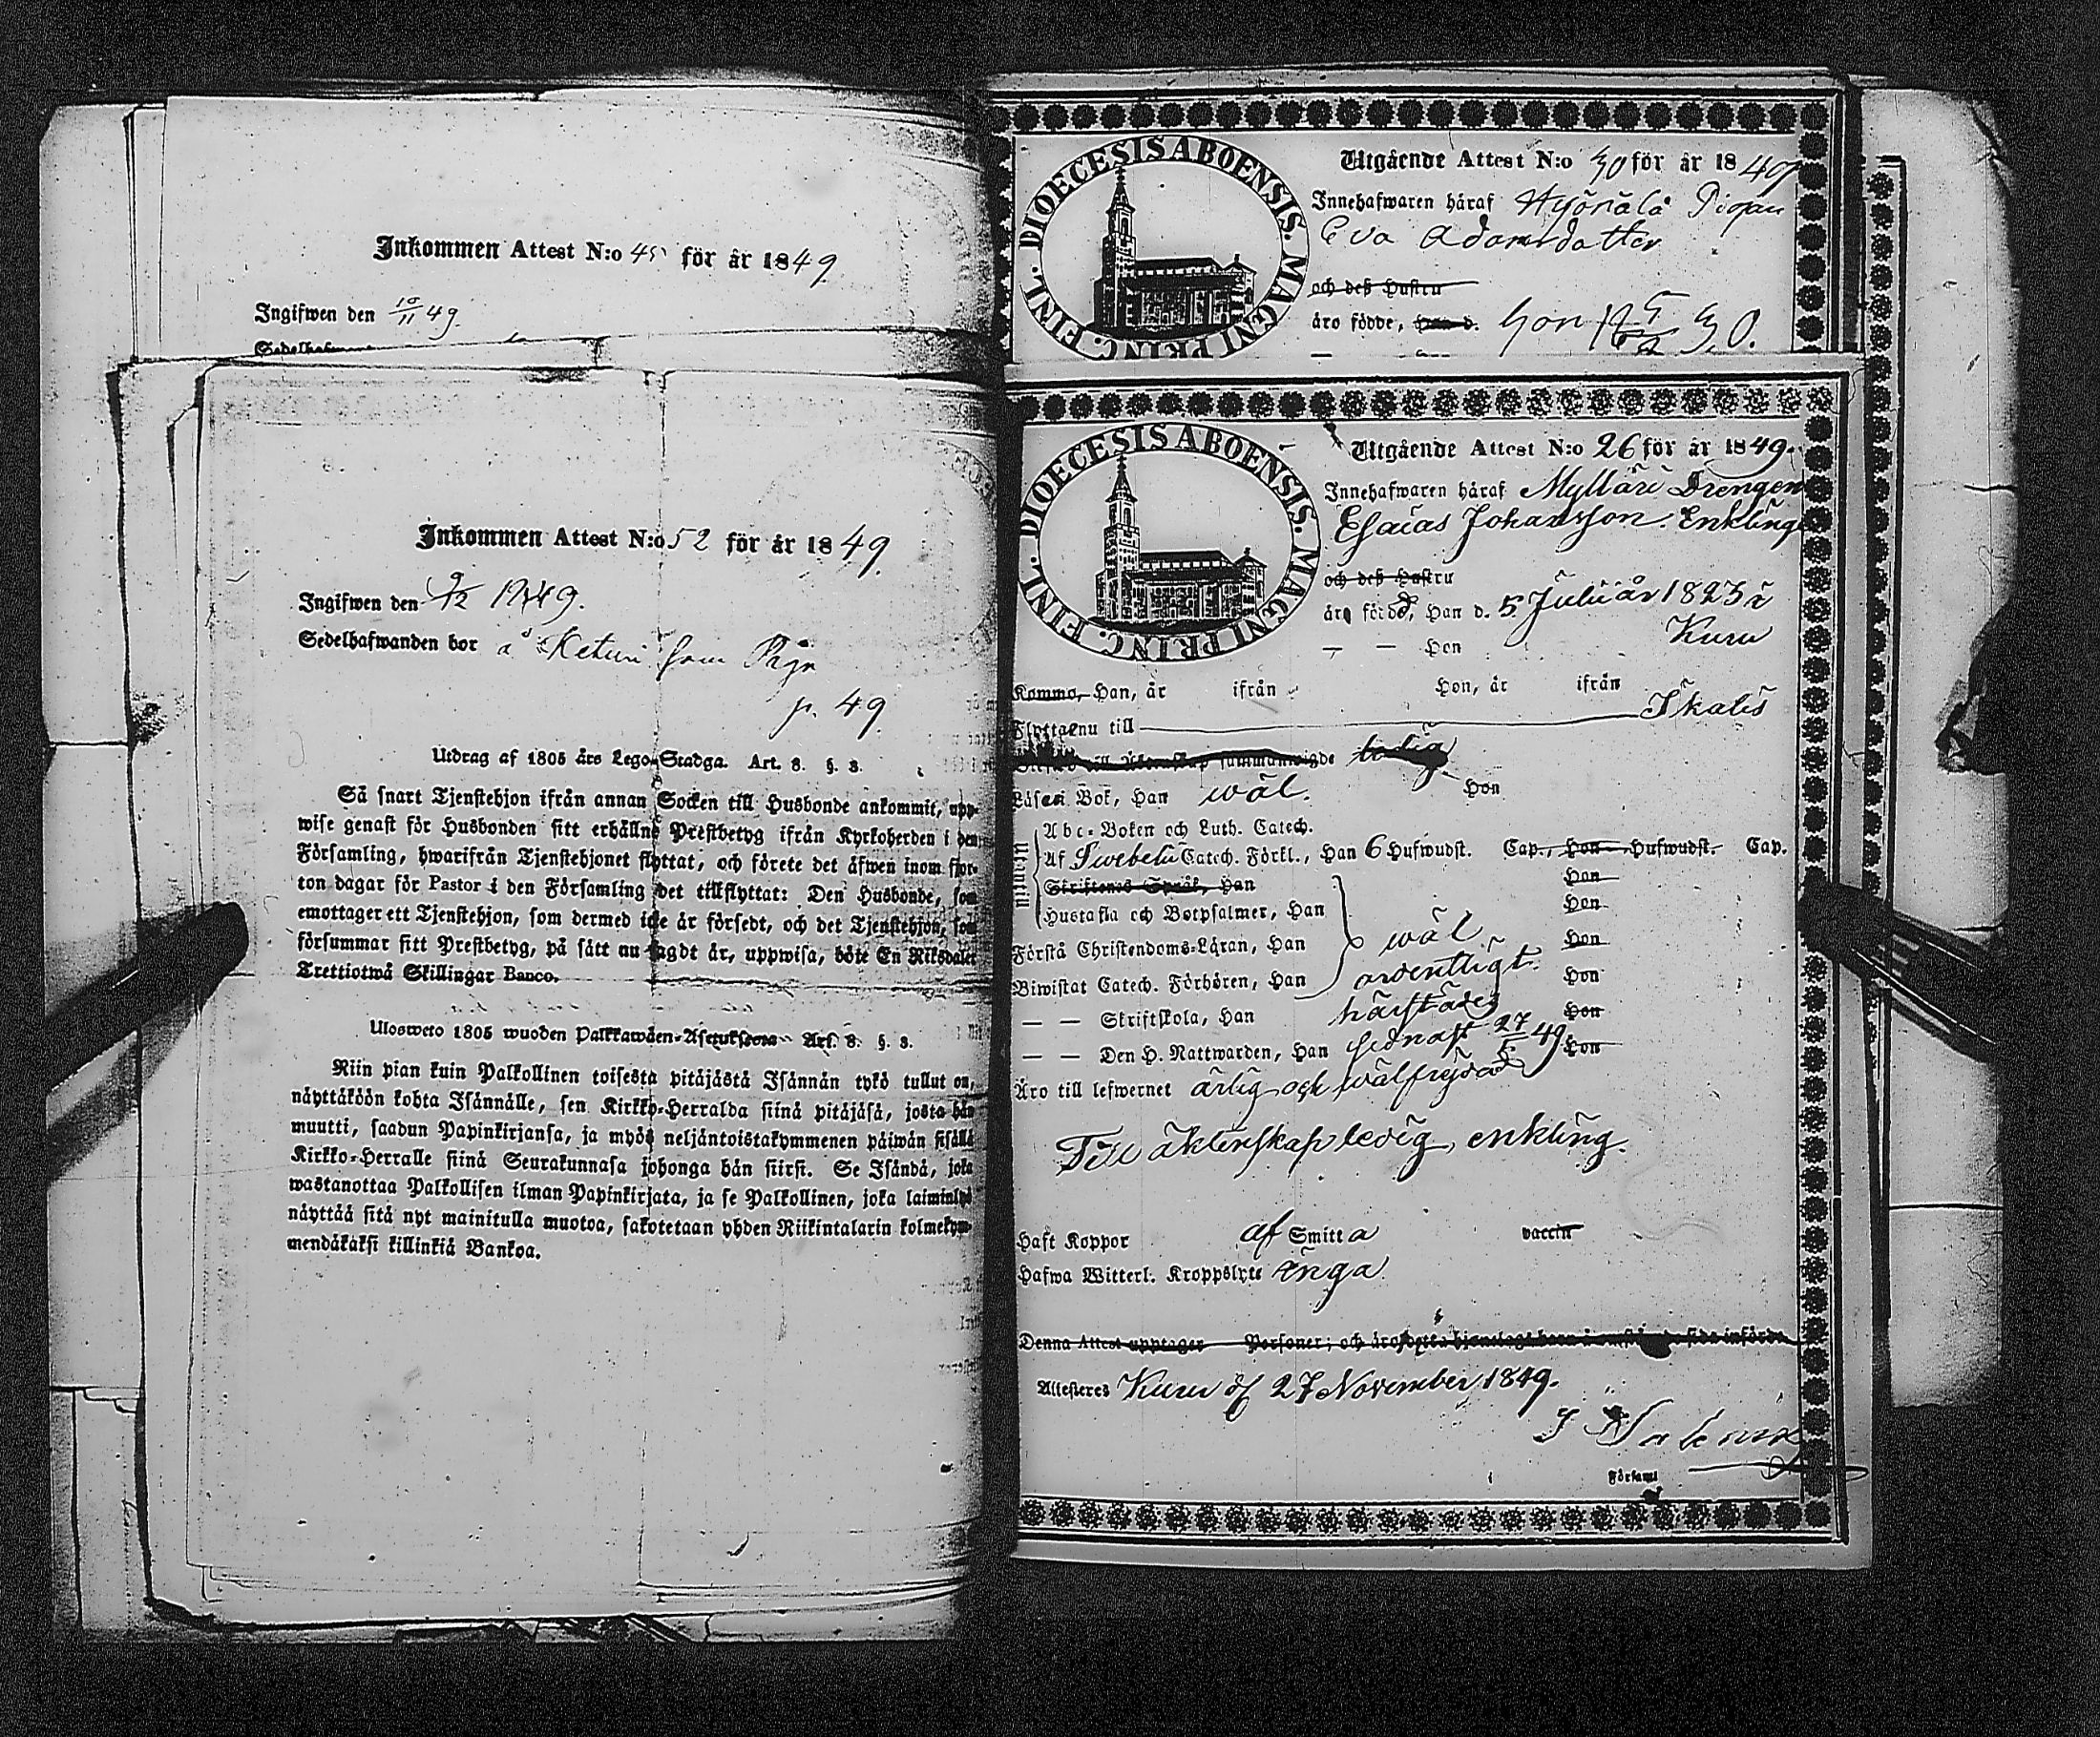 Inkommen Attest N:o 45 för år 1849.
Ingifwen den 10/11 49.
Inkommen Attest N:o 52 för år 1849.
Ingifwen den 9/12 1849.
Sedelhafwanden bor å Keturi som
p. 49
Utdrag af 1805 års Lego-Stadga. Art. 8. §. 8.
Så snart Tjenstehjon ifrån annan Socken till Husbonde ankommit, upp-
wise genast för Husbonden sitt erhållne Prestbetyg ifrån Kyrkoherden i den
Församling, hwarifrån Tjenstehjonet flyttat, och förete det äfwen inom fjor-
ton dagar för Pastor i den Församling det tillflyttat: Den Husbonde, som
emottager ett Tjenstehjon, som dermed icke är försedt, och det Tjenstehjon, som
försummar sitt Prestbetyg, på sätt nu sagdt är, uppwisa, böte En Riksdaler
Trettiotwå Skillingar Banco.
Ulosweto 1805 wuoden Palkkawäen-Asetuksesta Art. 8. §. 8.
Niin pian kuin Palkollinen toisesta pitäjästä Isännän tykö tullut on,
näyttäköön kohta Isännälle, sen Kirkko-Herralda siinä pitäjäsä, josta hän
muutti, saadun Papinkirjansa, ja myös neljäntoistakymmenen päiwän sisällä
Kirkko-Herralle siinä Seurakunnasa johonga hän siirsi. Se Isändä, joka
wastanottaa Palkollisen ilman Papinkirjata, ja se Palkollinen, joka laiminlyö
näyttää sitä nyt mainitulla muotoa, sakotetaan yhden Riikintalarin kolmekym-
mendäkaksi killinkiä Bankoa.
DIOECESIS ABOENSIS. MAGNI PRINC. FINL.
Utgående Attest N:o 30 för år 1849
Innehafwaren häraf Pigan
Eva Adamsdotter
och deß Hustru
äro födde, Han d. hon 30.
DIOECESIS ABOENSIS. MAGNI PRINC. FINL.
Utgående Attest N:o 26 för år 1849.
Innehafwaren häraf Mylläri Drengen
Esaias Johansson. Enkling
och deß Hustru
äro födde, Han d. 5 Julii år 1823 i
— — Hon Kuru
Kommo, Han, år ifrån Hon, år ifrån
Flytta nu till Ikalis
till Äktenskap sammanwigde ledig
Läsa i Bok, Han wäl. Hon
Abc-Boken och Luth. Catech.
Af Swebelii Catech. Förkl., Han 6 Hufwudst. Cap., Hon Hufwudst. Cap.
Skriftenes Språk, Han Hon
Hustafla och Botpsalmer, Han Hon
Förstå Christendoms-Läran, Han wäl Hon
Biwistat Catech. Förhören, Han ordentligt. Hon
— — Skriftskola, Han härstädes Hon
— — Den H. Nattwarden, Han sednast 27/5 49. Hon
Äro till lefwernet ärlig och wälfrejdad
Till äktenskap ledig, enkling.
Haft Koppor af Smitta vaccin
Hafwa Witterl. Kroppslyte inga
Denna Attest upptager Personer; och äro
Attesteres Kuru d. 27 November 1849.
Församl